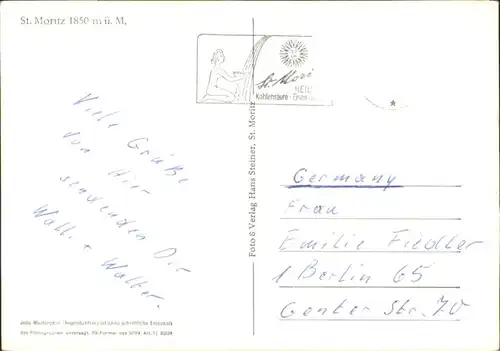 St. Moritz 1850 m ü. M.
St. Mori
HEIL
Kohlensäure - Eisen
Viele Grüße
von hier
senden Dir
Walter.
Foto & Verlag Hans Steiner, St. Moritz
Germany
Frau
Emilie Fiedler
1 Berlin 65
Genter Str. 70